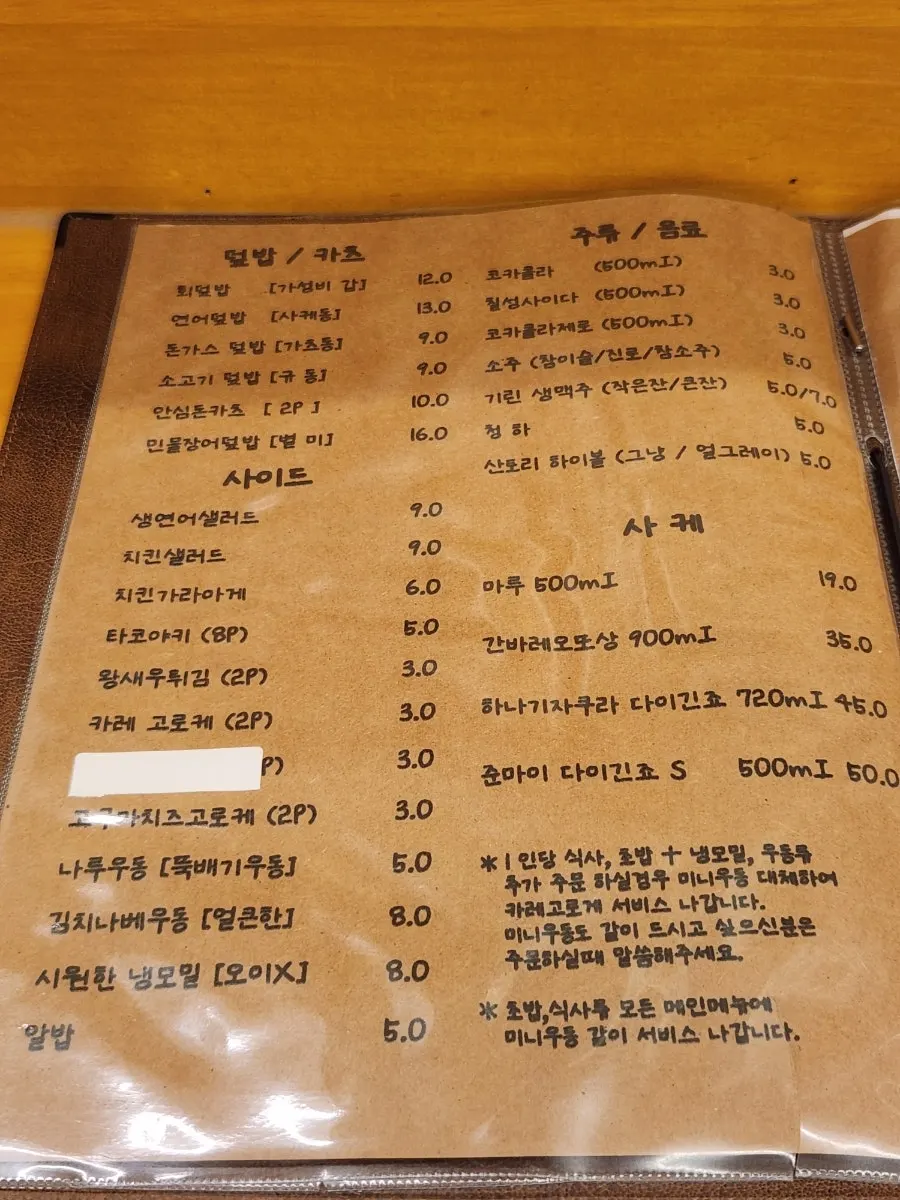 덮밥 / 카츠
회덮밥 [가성비 갑] 12.0
연어덮밥 [사케동] 13.0
돈가스 덮밥 [가츠동] 9.0
소고기 덮밥 [규 동] 9.0
안심돈카츠 [ 2P ] 10.0
민물장어덮밥 [별 미] 16.0
사이드
생연어샐러드 9.0
치킨샐러드 9.0
치킨가라아게 6.0
타코야키 (8P) 5.0
왕새우튀김 (2P) 3.0
카레 고로케 (2P) 3.0
P) 3.0
고구마치즈고로케 (2P) 3.0
나루우동 [뚝배기우동] 5.0
김치나베우동 [얼큰한] 8.0
시원한 냉모밀 [오이X] 8.0
알밥 5.0
주류 / 음료
코카콜라 (500ml) 3.0
칠성사이다 (500ml) 3.0
코카콜라제로 (500ml) 3.0
소주 (참이슬/진로/참소주) 5.0
기린 생맥주 (작은잔/큰잔) 5.0/7.0
청 하 5.0
산토리 하이볼 (그냥 / 얼그레이) 5.0
사 케
마루 500ml 19.0
간바레오또상 900ml 35.0
하나기자쿠라 다이긴죠 720ml 45.0
준마이 다이긴죠 S 500ml 50.0
* 1 인당 식사, 초밥 + 냉모밀, 우동류
추가 주문 하실경우 미니우동 대체하여
카레고로게 서비스 나갑니다.
미니우동도 같이 드시고 싶으신분은
주문하실때 말씀해주세요.
* 초밥,식사류 모든 메인메뉴에
미니우동 같이 서비스 나갑니다.